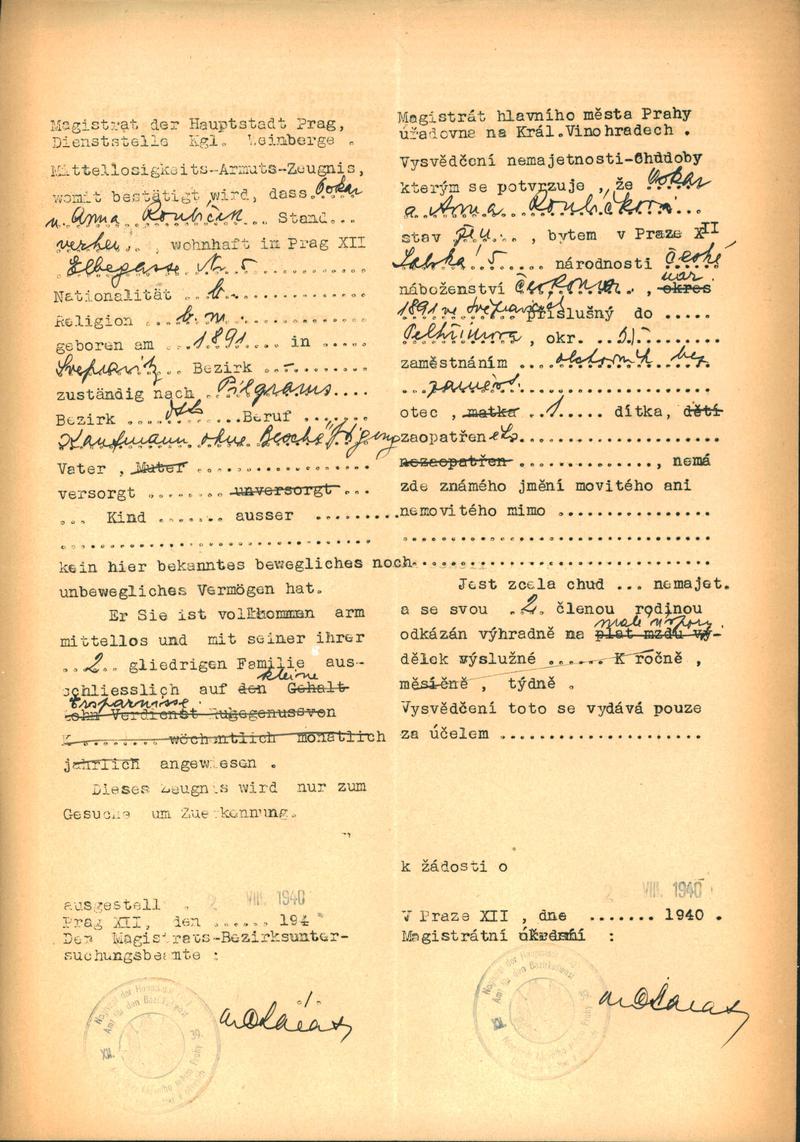 Magistrat der Hauptstadt Prag,
Dienststelle Kgl. Weinberge .
Mittellosigkeits-Armuts-Zeugnis,
womit bestätigt wird, dass Oskar
u. Anna Roubíček Stand...
verhei. , wohnhaft in Prag XII
Elbegasse Nr. 5
Nationalität
Religion
geboren am ...1891... in .....
Bezirk ..-..
zuständig nach Pilgrams....
Bezirk ... Beruf .......
Kaufmann ohne
Vater , Muter ................
versorgt ........ unversorgt ...
... Kind ....... ausser .........
..................................
kein hier bekanntes bewegliches noch
unbewegliches Vermögen hat.
Er Sie ist vollkommen arm
mittellos und mit seiner ihrer
..2.. gliedrigen Familie aus-
kleine
schliesslich auf den Gehalt
Ersparnisse
Lohn Verdienst Ruhegenussvon
K......... wöchntlich monatlich
jährlich angewiesen .
Dieses Zeugnis wird nur zum
Gesuche um Zuerkennung.
ausgestell . 2 VIII. 1940
Prag XII, den ...... 194
Der Magistrats-Bezirksunter-
suchungsbeamte :
Magistrát hlavního města Prahy
úřadovna na Král.Vinohradech .
Vysvědčení nemajetnosti-Chudoby
kterým se potvrzuje , že Oskar
a Anna Roubíčkova
stav , bytem v Praze XII
Labská 5 národnosti České
náboženství , okres
1891 ve příslušný do .....
Pelhřimova, okr.
zaměstnáním obchodník bez
zaměst.
otec , matka ..1.... dítka, děti
zaopatřen
nezaopatřen .............., nemá
zde známého jmění movitého ani
nemovitého mimo ................
.................................
.................................
Jest zcela chud ... nemajet.
a se svou .2. členou rodinou
malé úspory
odkázán výhradně na plat mzdu vý-
dělek výslužné ...... K ročně ,
měsíčně , týdně .
Vysvědčení toto se vydává pouze
za účelem .....................
k žádosti o
2 VIII. 1940
V Praze XII , dne ....... 1940 .
Magistrátní úředník :